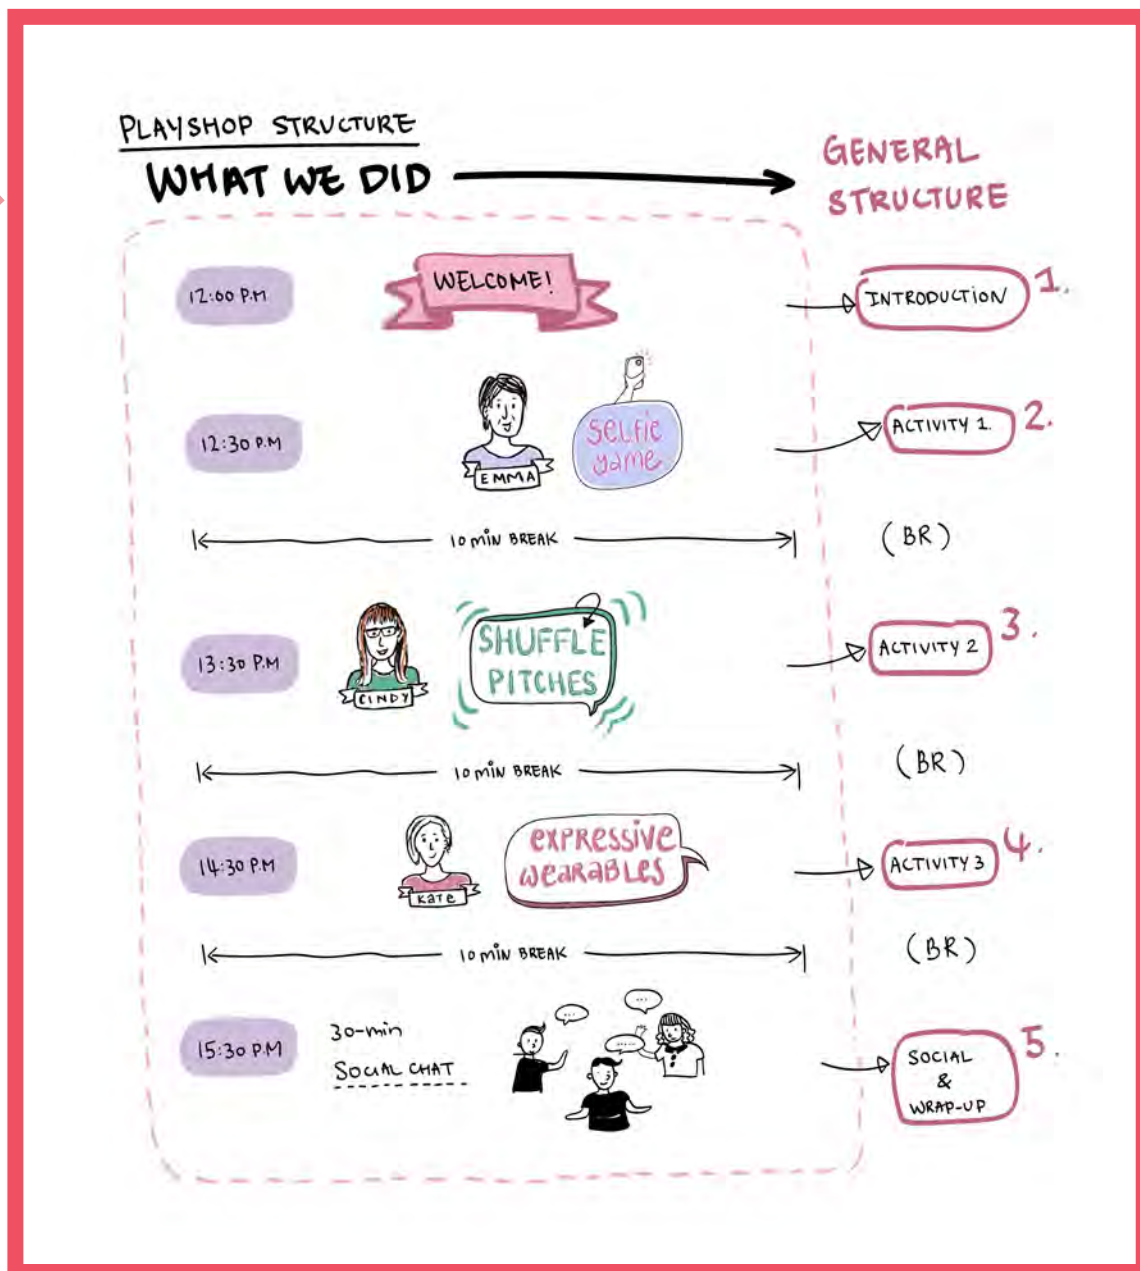 PLAYSHOP STRUCTURE
WHAT WE DID
GENERAL
STRUCTURE
12:00 P.M
WELCOME!
INTRODUCTION
1.
12:30 P.M
EMMA
SELFIE
game
ACTIVITY 1.
2.
10 min BREAK
(BR)
13:30 P.M
CINDY
SHUFFLE
PITCHES
ACTIVITY 2
3.
10 min BREAK
(BR)
14:30 P.M
Kate
expressive
wearables
ACTIVITY 3
4.
10 min BREAK
(BR)
15:30 P.M
30-min
SOCIAL CHAT
SOCIAL
&
WRAP-UP
5.